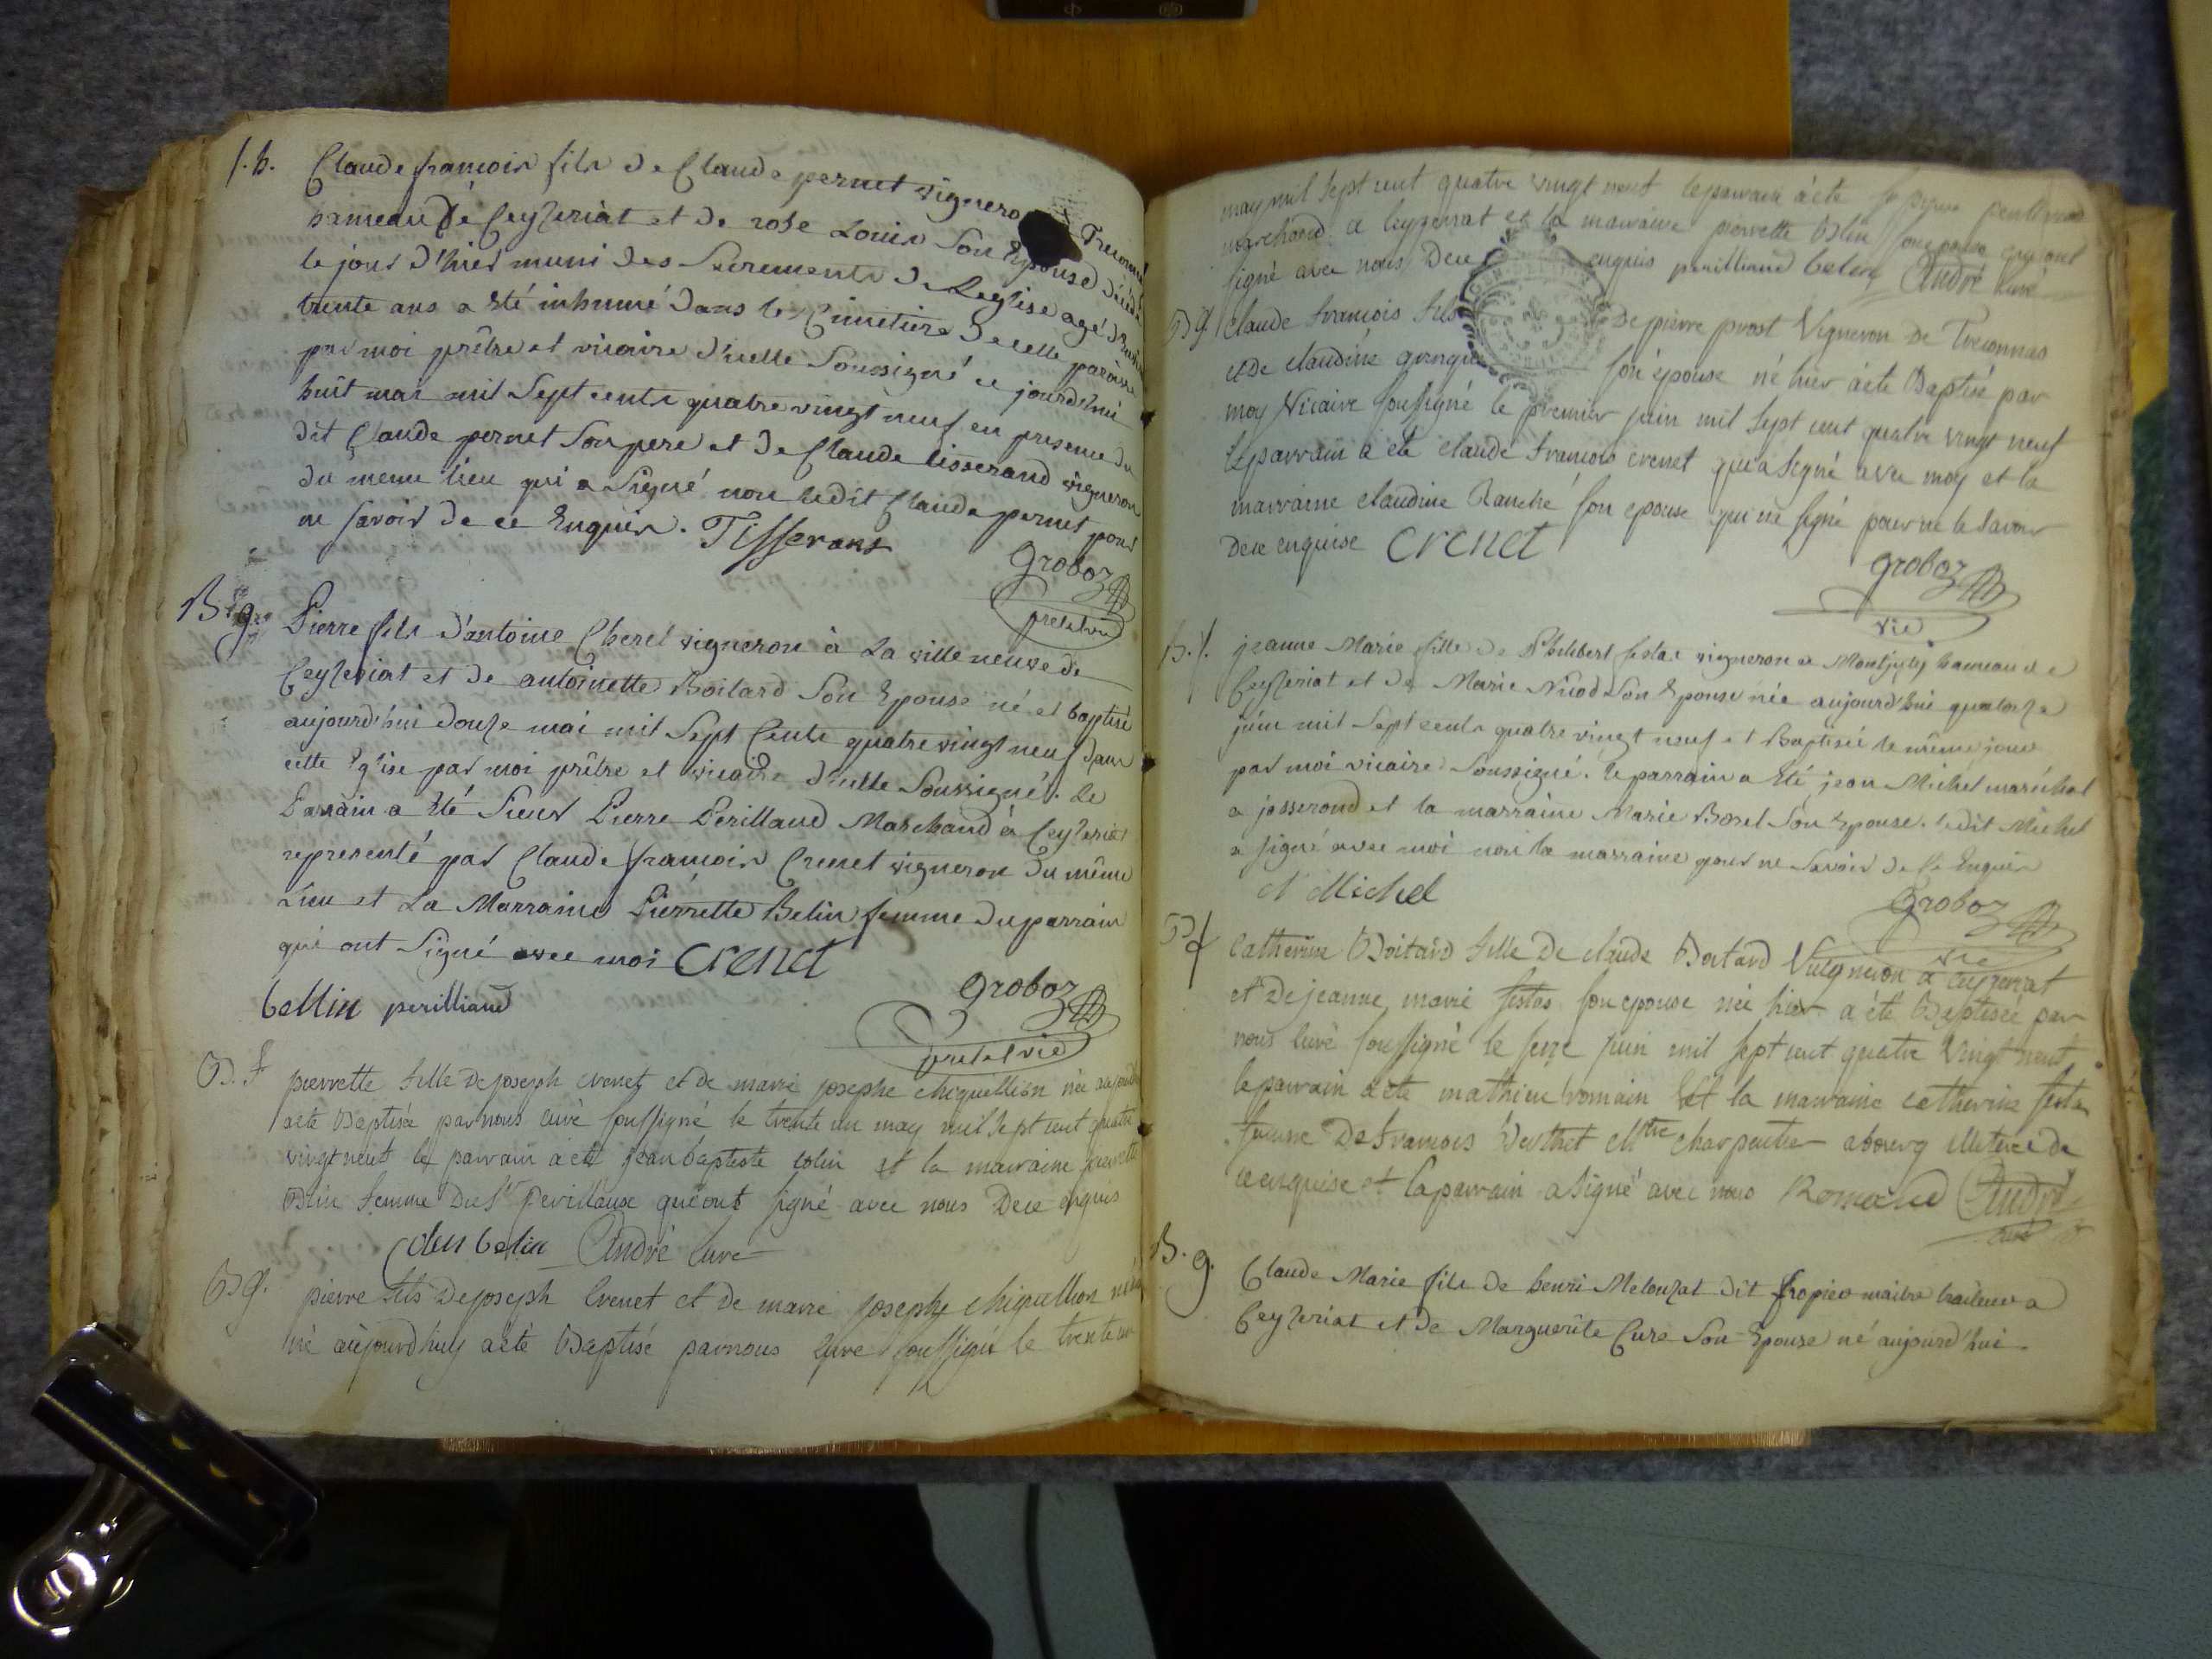 f. h. Claude francois fils de Claude pernet vignero à Treconna
hameau de Ceyzeriat et de rose Louis son Epouse décédé
le jour d'hier muni des Sacrements de Leglise agé d'environ
trente ans a été inhumé dans le Cimetiere de cette paroisse
par moi prêtre et vicaire d'icelle Soussigné ce jourd'hui
huit mai mil Sept cents quatre vingt neuf en presence du
dit Claude pernet son pere et de Claude tisserand vigneron
du meme lieu qui a Signé non ledit Claude pernet pour
ne savoir de ce Enquis. Tisserans
Groboz
pret et vic
B. g. Pierre fils d'antoine Cherel vigneron à La villeneuve de
Ceyzeriat et de antoinette Boitard son Epouse né et baptisé
aujourd'hui douze mai mil Sept Cents quatre vingt neuf dans
cette Eglise par moi prêtre et vicaire d'icelle Soussigné. Le
Parrain a été Sieur Pierre Perillaud Marchand à Ceyzeriat
representé par Claude francois Crenet vigneron du même
Lieu et La Marraine Pierrette Belin femme du parrain
qui ont Signé avec moi Crenet
bellin perilliaud
Groboz
pret et vic
B. f pierrette fille de joseph crenet et de marie josephe chiquellion née aujourd'hui
a été Baptisée par nous curé soussigné le trente un may mil sept cent quatre
vingt neuf le parrain a été jean baptiste colin et la marraine pierrette
Blin femme du Sr perillaux qui ont signé avec nous de ce enquis
colin belin André curé
B g. pierre fils de joseph Crenet et de marie josephe chiquellion
né aujourd'huy a été Baptisé par nous Curé soussigné le trente un
may mil sept cent quatre vingt neuf le parrain a été Sr pierre
marchand a Ceyzeriat et la marraine pierrette Blin son epouse qui ont
signé avec nous de ce enquis perilliaud belin André curé
B g. Claude francois fils de pierre prost Vigneron de Treconnas
et de claudine son épouse né hier a été Baptisé par
moy Vicaire soussigné le premier juin mil sept cent quatre vingt neuf
le parrain a été claude francois crenet qui a signé avec moy et la
marraine claudine Ranché son epouse qui ne signé pour ne le savoir
de ce enquise Crenet
Groboz
vic
B. f. jeanne Marie fille de Philibert festas vigneron a Montjuly hameau de
Ceyzeriat et de Marie Niod son Epouse née aujourd'hui quatorze
juin mil Sept cents quatre vingt neuf et Baptisée le même jour
par moi vicaire Soussigné. le parrain a été jean Michel maréchal
a jasserond et la marraine Marie Borel Son Epouse. ledit Michel
a signé avec moi non la marraine pour ne Savoir de ce Enquis
Michel
Groboz
vic
B f Catherine Boitard fille de claude Boitard Vuigneron a ceyzeriat
et de jeanne marie festas son epouse née hier a été Baptisée par
nous Curé soussigné le seize juin mil sept cent quatre vingt neuf
le parrain a été mathieu romain Et la marraine catherine festas
femme de francois Vuithet Mtre charpentier abourg illiterée de
ce enquise et le parrain a signé avec nous Romand André
curé
B. g. Claude Marie fils de henri Melonzat dit fropier maitre traiteur a
Ceyzeriat et de Marguerite Cure Son Epouse né aujourd'hui